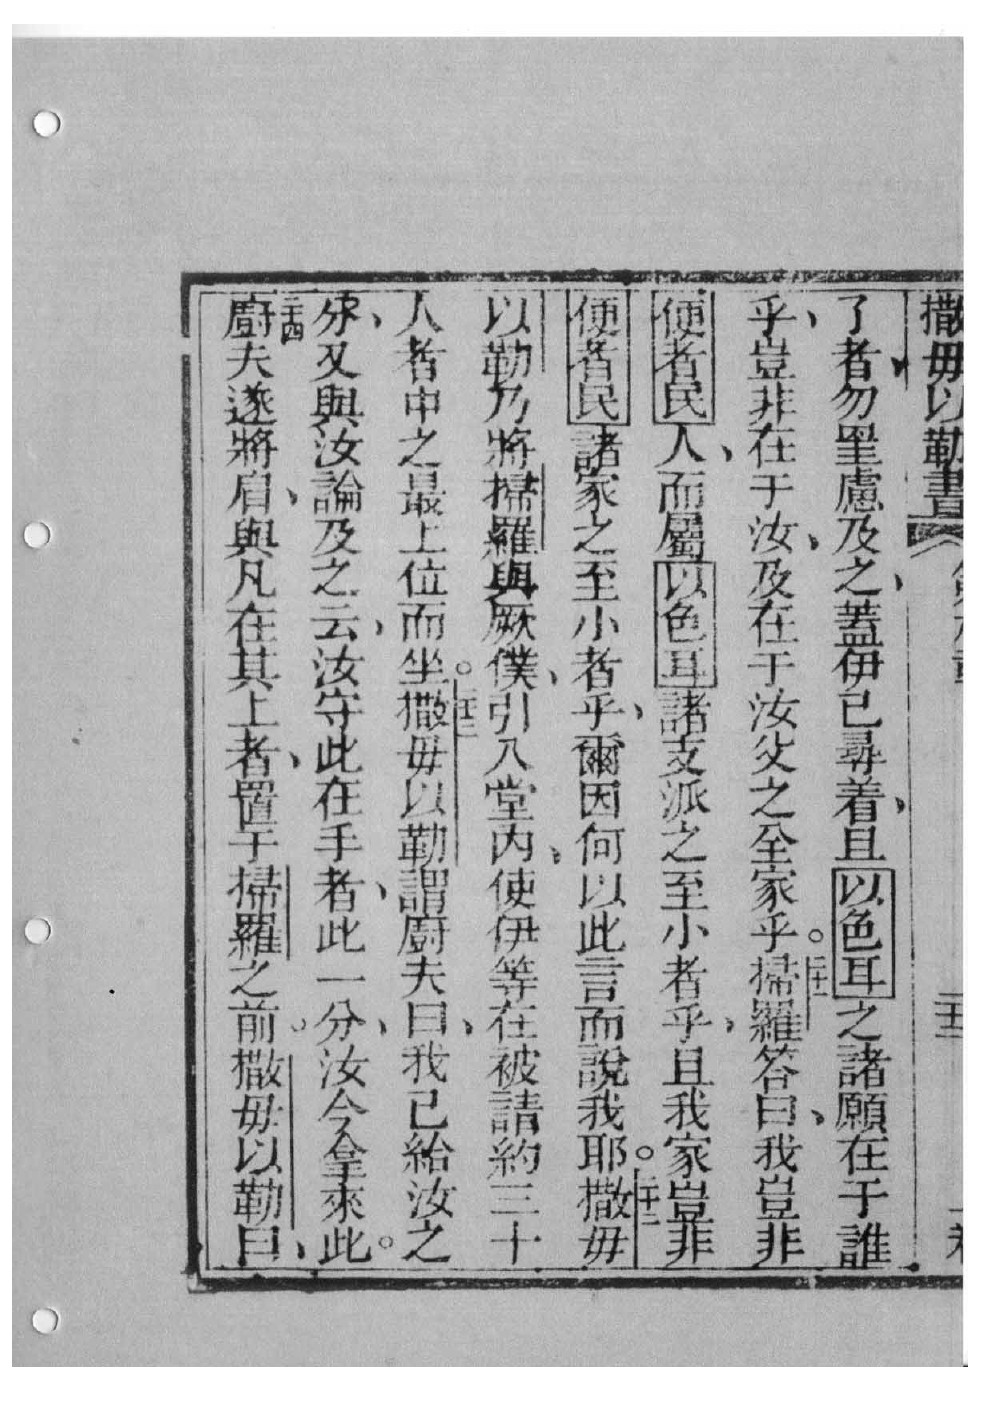 撒毋以勒書
了者、勿罣慮及之、蓋伊已尋着、且以色耳之諸願在于誰
乎、豈非在于汝、及在于汝父之全家乎。二十一掃羅答曰、我豈非
便者民人、而屬以色耳諸支派之至小者乎、且我家豈非
便者民諸家之至小者乎、爾因何以此言而說我耶。二十二撒毋
以勒乃將掃羅與厥僕、引入堂內、使伊等在被請約三十
人者中之最上位而坐。二十三撒毋以勒謂廚夫曰、我已給汝之
分、又與汝論及之云、汝守此在手者、此一分、汝今拿來此。
二十四廚夫遂將眉、與凡在其上者、置于掃羅之前。撒毋以勒曰、